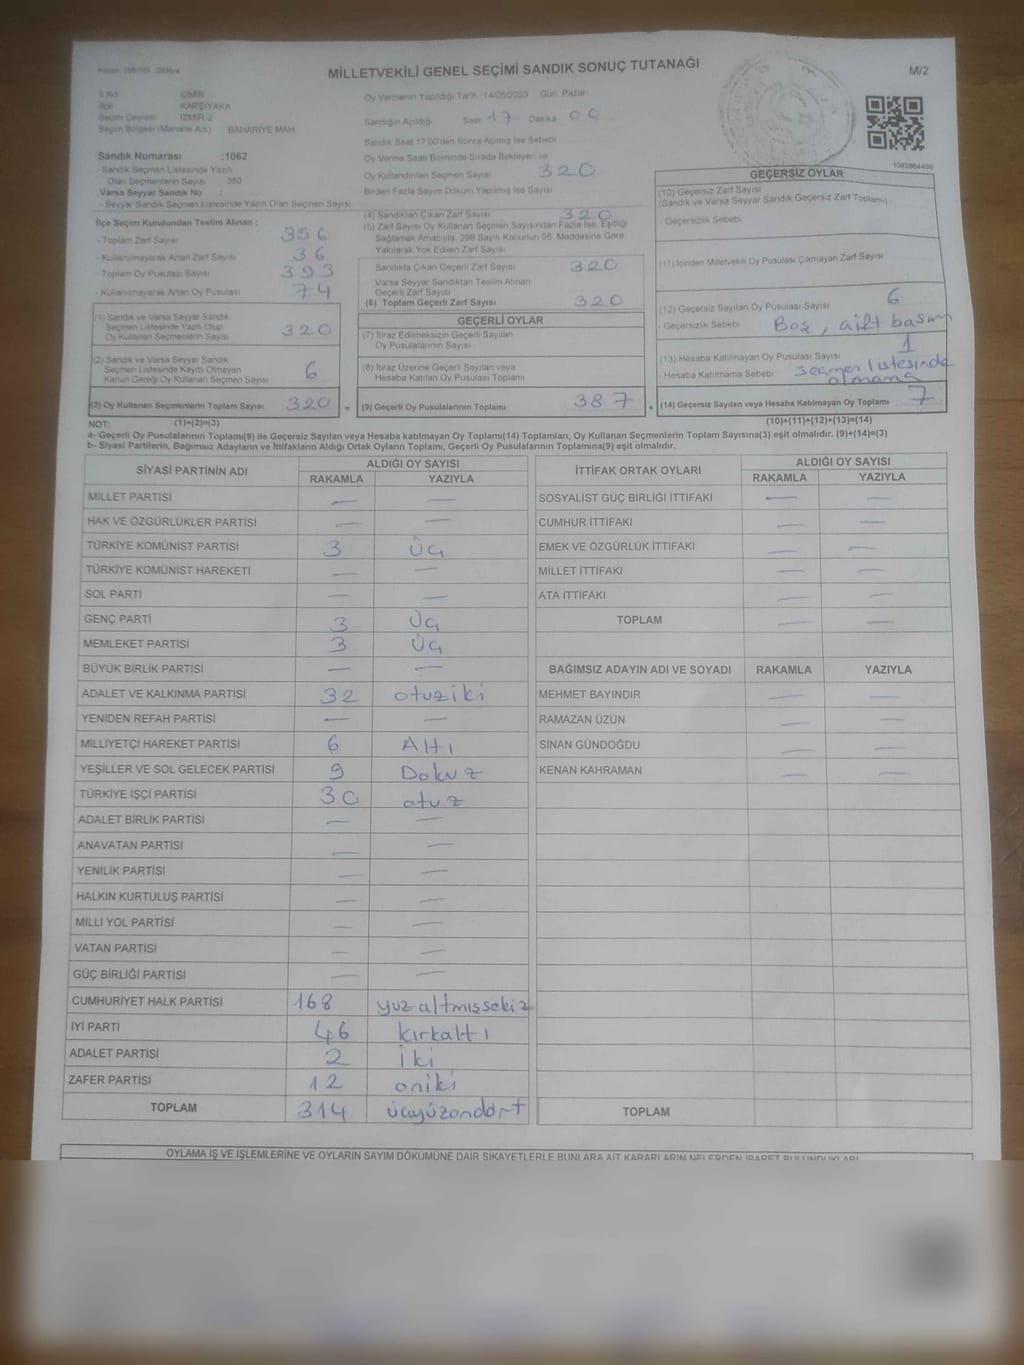 MİLLETVEKİLİ GENEL SEÇİMİ SANDIK SONUÇ TUTANAĞI
M/2
İl Adı İZMİR
İlçe KARŞIYAKA
Seçim Çevresi İZMİR-2
Seçim Bölgesi (Mahalle Adı) BAHARİYE MAH.
Sandık Numarası :1062
- Sandık Seçmen Listesinde Yazılı
Olan Seçmenlerin Sayısı 350
Varsa Seyyar Sandık No :
- Seyyar Sandık Seçmen Listesinde Yazılı Olan Seçmen Sayısı
Oy Vermenin Yapıldığı Tarih :14/05/2023 Gün: Pazar
Sandığın Açıldığı Saat 17 Dakika 00
Sandık Saat 17:00'den Sonra Açılmış İse Sebebi
Oy Verme Saati Bitiminde Sırada Bekleyen ve
Oy Kullandırılan Seçmen Sayısı 320
Birden Fazla Sayım Döküm Yapılmış İse Sayısı
İlçe Seçim Kurulundan Teslim Alınan ;
- Toplam Zarf Sayısı 356
- Kullanılmayarak Artan Zarf Sayısı 36
- Toplam Oy Pusulası Sayısı 393
- Kullanılmayarak Artan Oy Pusulası 74
(1) Sandık ve Varsa Seyyar Sandık
Seçmen Listesinde Yazılı Olup
Oy Kullanan Seçmenlerin Sayısı 320
(2) Sandık ve Varsa Seyyar Sandık
Seçmen Listesinde Kayıtlı Olmayan
Kanun Gereği Oy Kullanan Seçmen Sayısı 6
(3) Oy Kullanan Seçmenlerin Toplam Sayısı 320 =
(4) Sandıktan Çıkan Zarf Sayısı 320
(5) Zarf Sayısı Oy Kullanan Seçmen Sayısından Fazla İse, Eşitliği
Sağlamak Amacıyla, 298 Sayılı Kanunun 98. Maddesine Göre
Yakılarak Yok Edilen Zarf Sayısı
Sandıkta Çıkan Geçerli Zarf Sayısı 320
Varsa Seyyar Sandıktan Teslim Alınan
Geçerli Zarf Sayısı
(6) Toplam Geçerli Zarf Sayısı 320
GEÇERLİ OYLAR
(7) İtiraz Edilmeksizin Geçerli Sayılan
Oy Pusulalarının Sayısı
(8) İtiraz Üzerine Geçerli Sayılan veya
Hesaba Katılan Oy Pusulaları Toplamı
(9) Geçerli Oy Pusulalarının Toplamı 387 +
GEÇERSİZ OYLAR
(10) Geçersiz Zarf Sayısı
(Sandık ve Varsa Seyyar Sandık Geçersiz Zarf Toplamı)
- Geçersizlik Sebebi
(11) İçinden Milletvekili Oy Pusulası Çıkmayan Zarf Sayısı
(12) Geçersiz Sayılan Oy Pusulası Sayısı 6
- Geçersizlik Sebebi Boş, çift basım
(13) Hesaba Katılmayan Oy Pusulası Sayısı 1
- Hesaba Katılmama Sebebi seçmen listesinde
olmama
(14) Geçersiz Sayılan veya Hesaba Katılmayan Oy Toplamı 7
NOT: (1)+(2)=(3) (10)+(11)+(12)+(13)=(14)
a- Geçerli Oy Pusulalarının Toplamı(9) ile Geçersiz Sayılan veya Hesaba katılmayan Oy Toplamı(14) Toplamları, Oy Kullanan Seçmenlerin Toplam Sayısına(3) eşit olmalıdır. (9)+(14)=(3)
b- Siyasi Partilerin, Bağımsız Adayların ve İttifakların Aldığı Ortak Oyların Toplamı, Geçerli Oy Pusulalarının Toplamına(9) eşit olmalıdır.
SİYASİ PARTİNİN ADI ALDIĞI OY SAYISI
RAKAMLA YAZIYLA
MİLLET PARTİSİ — —
HAK VE ÖZGÜRLÜKLER PARTİSİ — —
TÜRKİYE KOMÜNİST PARTİSİ 3 Üç
TÜRKİYE KOMÜNİST HAREKETİ — —
SOL PARTİ — —
GENÇ PARTİ 3 Üç
MEMLEKET PARTİSİ 3 Üç
BÜYÜK BİRLİK PARTİSİ — —
ADALET VE KALKINMA PARTİSİ 32 otuziki
YENİDEN REFAH PARTİSİ — —
MİLLİYETÇİ HAREKET PARTİSİ 6 Altı
YEŞİLLER VE SOL GELECEK PARTİSİ 9 Dokuz
TÜRKİYE İŞÇİ PARTİSİ 30 otuz
ADALET BİRLİK PARTİSİ — —
ANAVATAN PARTİSİ — —
YENİLİK PARTİSİ — —
HALKIN KURTULUŞ PARTİSİ — —
MİLLİ YOL PARTİSİ — —
VATAN PARTİSİ — —
GÜÇ BİRLİĞİ PARTİSİ — —
CUMHURİYET HALK PARTİSİ 168 yüzaltmışsekiz
İYİ PARTİ 46 kırkaltı
ADALET PARTİSİ 2 iki
ZAFER PARTİSİ 12 oniki
TOPLAM 314 üçyüzondört
İTTİFAK ORTAK OYLARI ALDIĞI OY SAYISI
RAKAMLA YAZIYLA
SOSYALİST GÜÇ BİRLİĞİ İTTİFAKI — —
CUMHUR İTTİFAKI — —
EMEK VE ÖZGÜRLÜK İTTİFAKI — —
MİLLET İTTİFAKI — —
ATA İTTİFAKI — —
TOPLAM — —
BAĞIMSIZ ADAYIN ADI VE SOYADI RAKAMLA YAZIYLA
MEHMET BAYINDIR — —
RAMAZAN ÜZÜN — —
SİNAN GÜNDOĞDU — —
KENAN KAHRAMAN — —
TOPLAM
OYLAMA İŞ VE İŞLEMLERİNE VE OYLARIN SAYIM DÖKÜMÜNE DAİR ŞİKAYETLERLE BUNLARA AİT KARARLARIN NELERDEN İBARET BULUNDUKLARI